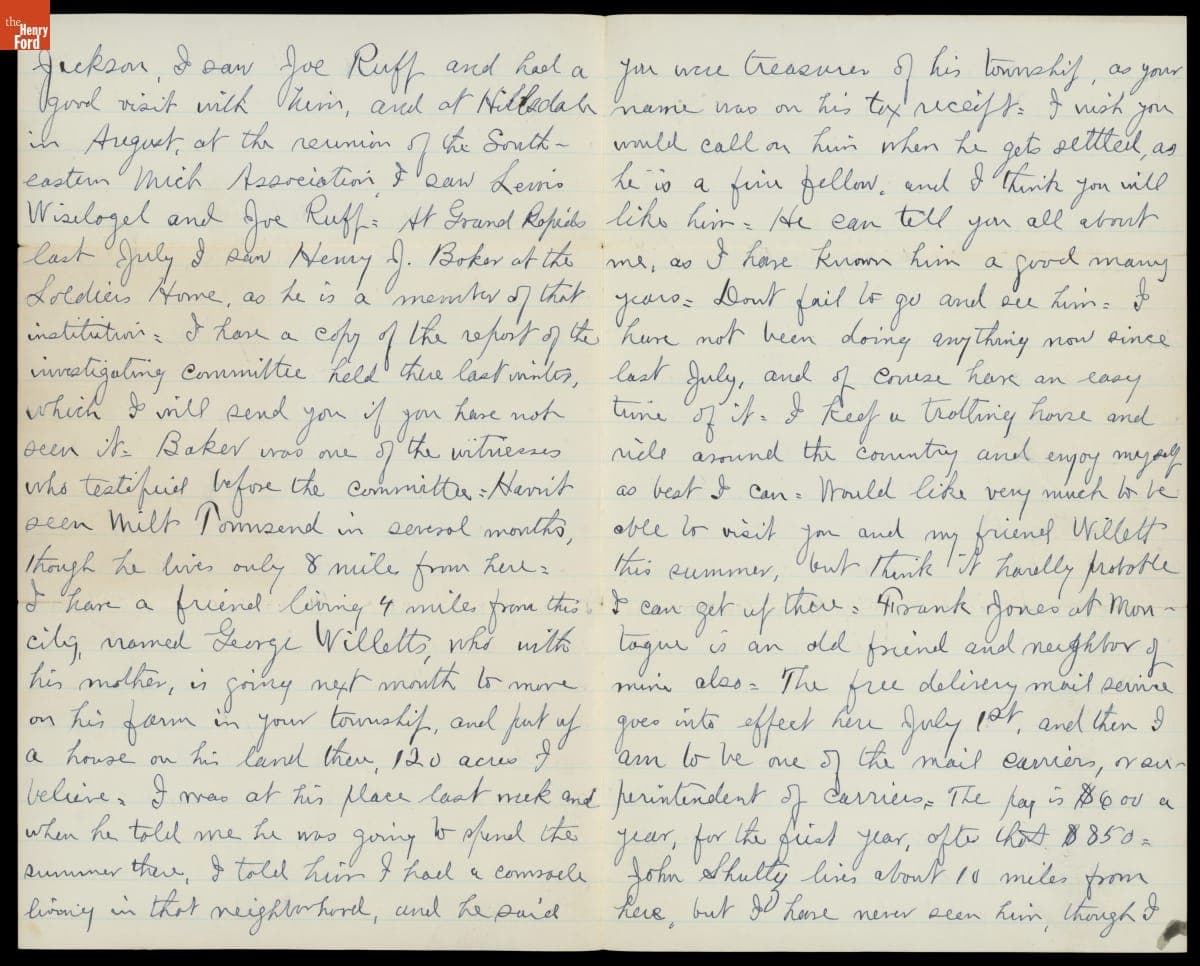 the
Henry
Ford
Jackson, I saw Joe Ruff and had a
good visit with him, and at Hillsdale
in August, at the reunion of the South-
eastern Mich Association, I saw Lewis
Wiselogel and Joe Ruff = At Grand Rapids
last July I saw Henry J. Baker at the
Soldiers Home, as he is a member of that
institution = I have a copy of the report of the
investigating committee held there last winter,
which I will send you if you have not
seen it = Baker was one of the witnesses
who testified before the committee = Havnt
seen Milt Townsend in several months,
though he lives only 8 miles from here =
I have a friend living 4 miles from this
city, named George Willetts, who with
his mother, is going next month to move
on his farm in your township, and put up
a house on his land there, 120 acres I
believe = I was at his place last week and
when he told me he was going to spend the
summer there, I told him I had a comrade
living in that neighborhood, and he said
you were treasurer of his township, as your
name was on his tax receipt = I wish you
would call on him when he gets settled, as
he is a fine fellow, and I think you will
like him = He can tell you all about
me, as I have known him a good many
years = Dont fail to go and see him = I
have not been doing anything now since
last July, and of course have an easy
time of it = I keep a trotting horse and
ride around the country and enjoy myself
as best I can = Would like very much to be
able to visit you and my friend Willett
this summer, but think it hardly probable
I can get up there = Frank Jones at Mon-
tague is an old friend and neighbor of
mine also = The free delivery mail service
goes into effect here July 1st, and then I
am to be one of the mail carriers, or su-
perintendent of carriers = The pay is $600 a
year, for the first year, after that $850 =
John Shultz lives about 10 miles from
here, but I have never seen him, though I